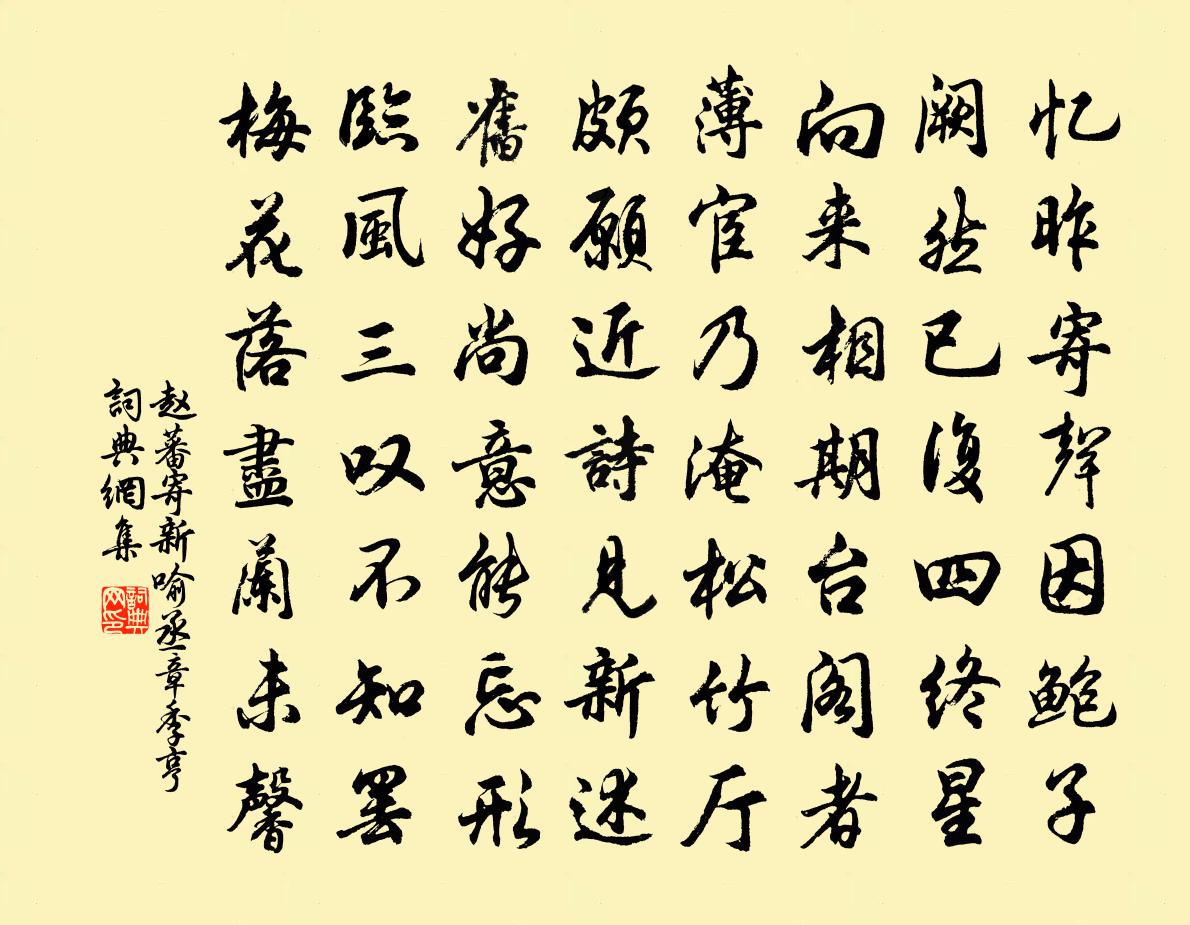 忆昨寄聲因鲍子
阙然已復四终星
向来相期台阁者
薄宦乃淹松竹厅
颇願近詩見新述
舊好尚意能忘形
臨風三叹不知罢
梅花落盡蘭未馨
赵蕃寄新喻丞章季亨
詞典網集
詞典网印